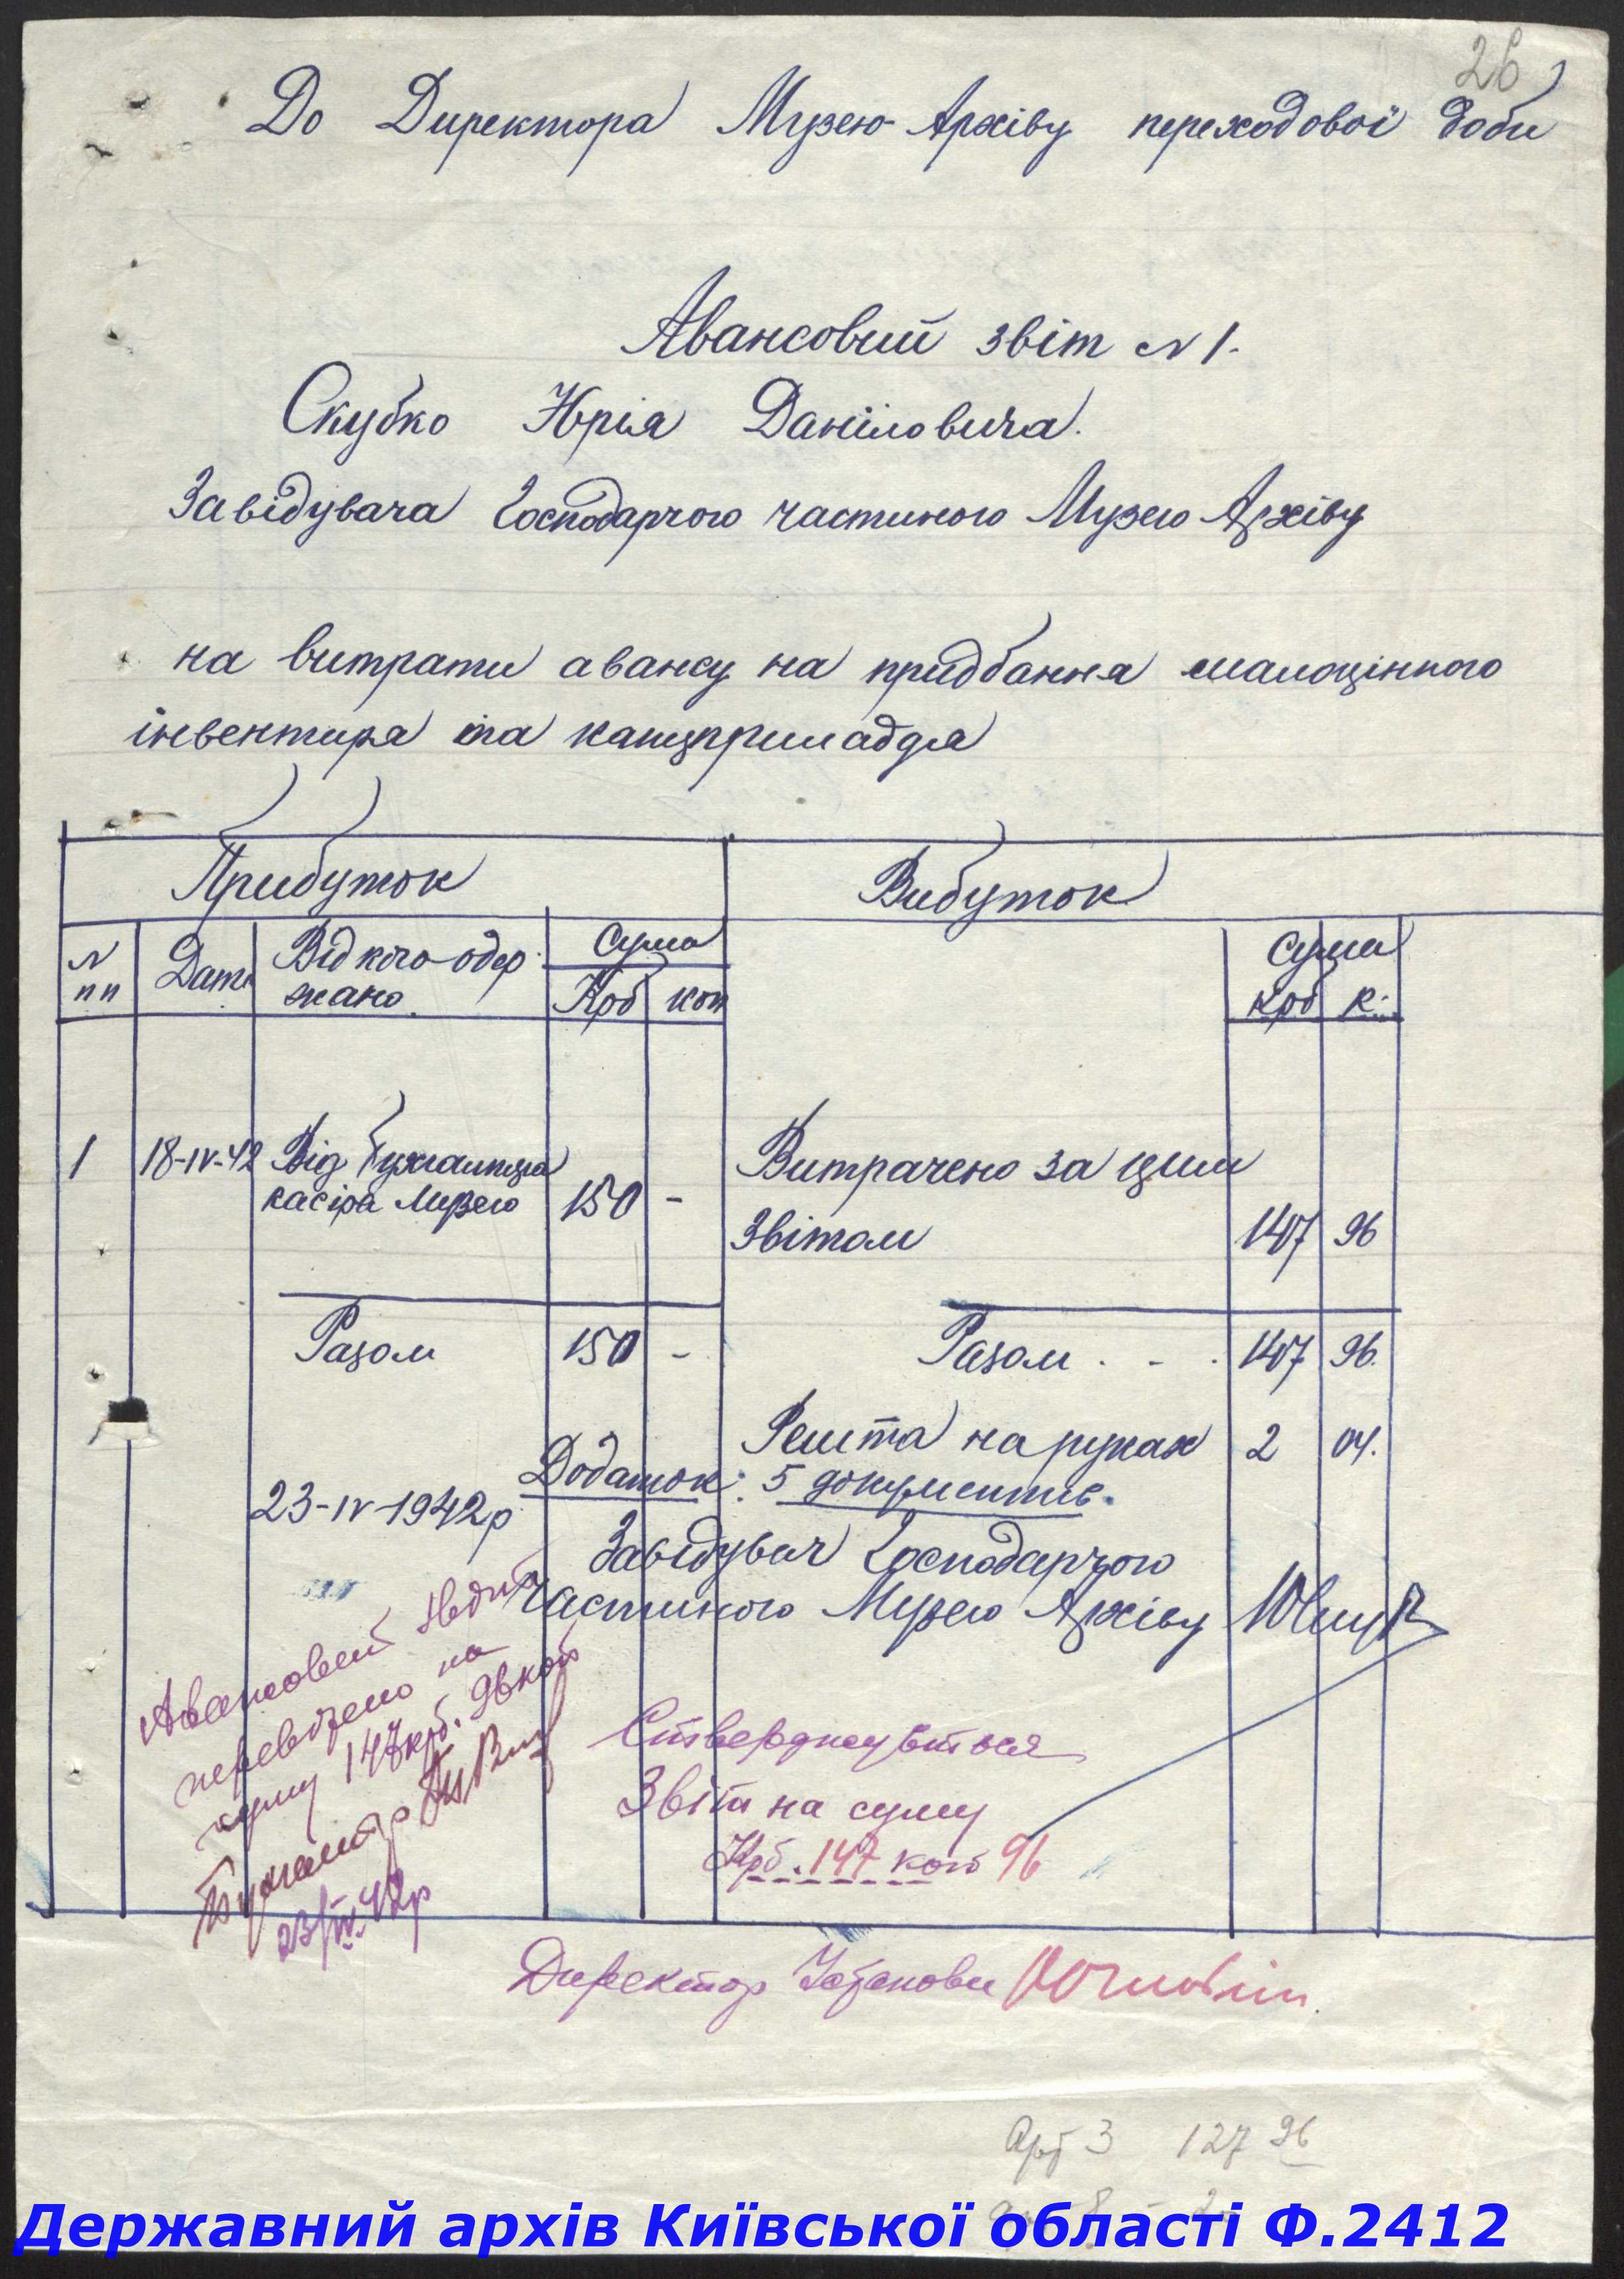 26
До Директора Музею-Архіву переходової доби
Авансовий звіт N 1.
Скубко Юрія Даніїловича.
Завідувача Господарчою частиною Музею Архіву
на витрати авансу на придбання малоцінного
інвентиря та канцприладдя
Прибуток Вибуток
N пп Дата Від кого одержано. Сума Крб коп Сума крб к.
1 18-IV-42 Від бухгалтера касіра Музею 150 - Витрачено за цим
Звітом 147 96
Разом 150 - Разом . - . 147 96.
Решта на руках 2 04.
Додаток: 5 документів.
23-IV-1942р.
Завідувач Господарчою
частиною Музею Архіву
Авансовий звіт
перевірено на
суму 147 крб. 96 коп
Бухгалтер
23/IV.42р
Стверджується
Звіт на суму
Крб. 147 коп 96
Директор Установи
Арт 3 127 96
Державний архів Київської області Ф.2412